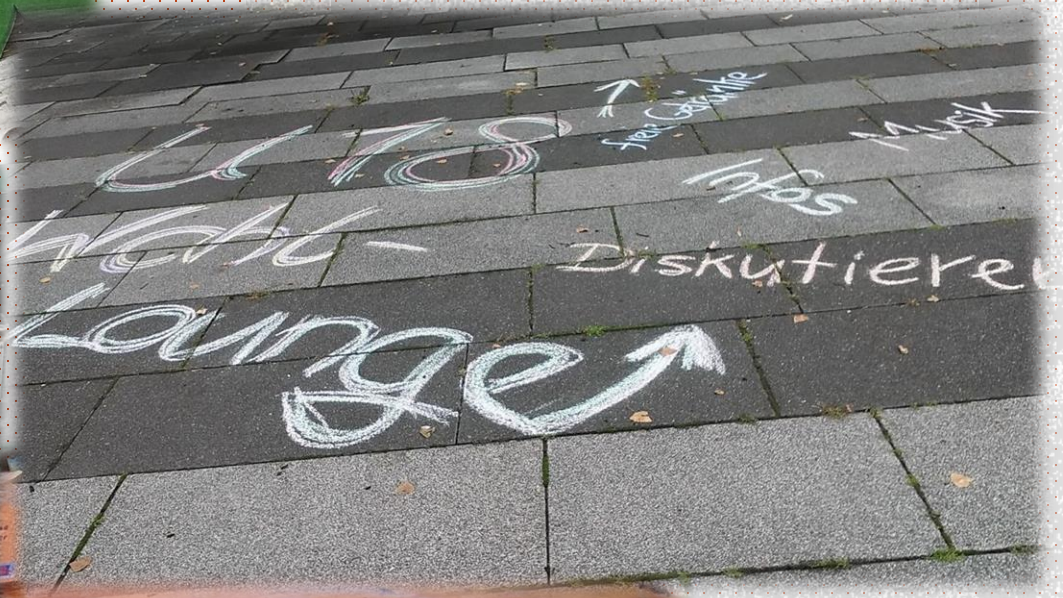 U18
Wahl-
Lounge
freie Getränke
Musik
Infos
Diskutieren